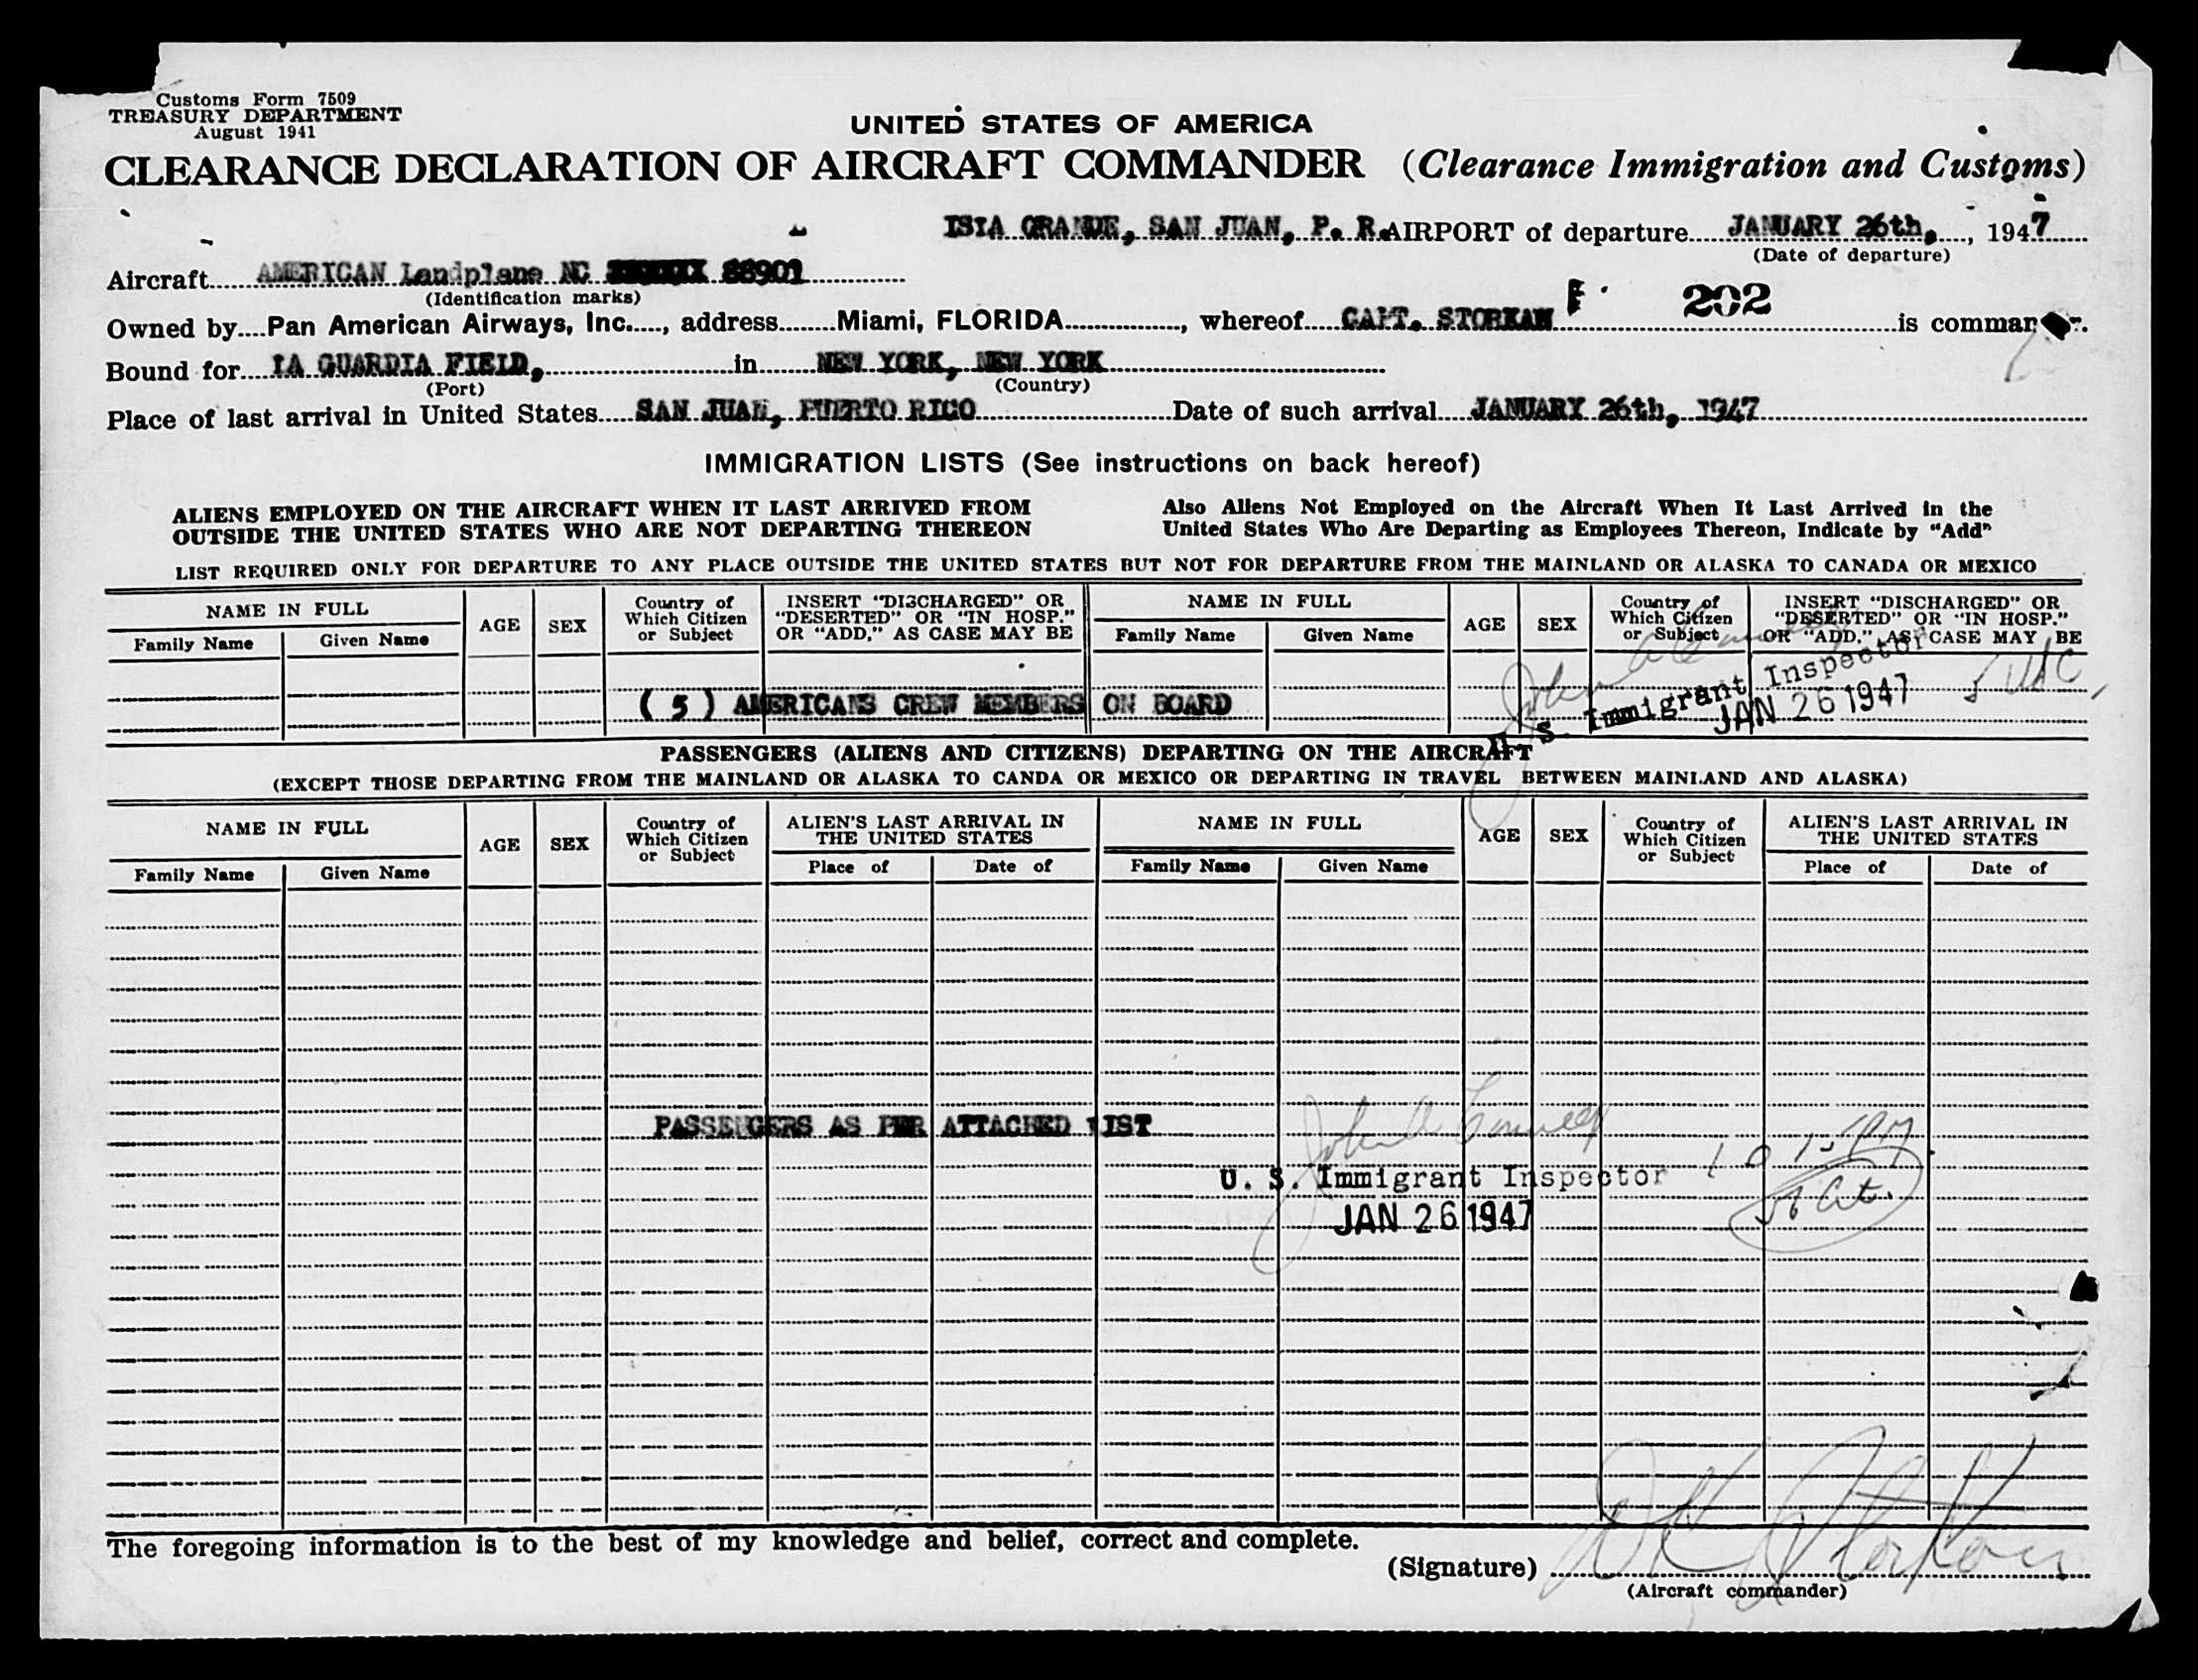 Customs Form 7509
TREASURY DEPARTMENT
August 1941
UNITED STATES OF AMERICA
CLEARANCE DECLARATION OF AIRCRAFT COMMANDER (Clearance Immigration and Customs)
ISLA GRANDE, SAN JUAN, P. R. AIRPORT of departure JANUARY 26th, 1947
(Date of departure)
Aircraft AMERICAN Landplane NC 88901
(Identification marks)
Owned by Pan American Airways, Inc., address Miami, FLORIDA, whereof CAPT. STORKAN F 202 is
Bound for LA GUARDIA FIELD, in NEW YORK, NEW YORK
(Port) (Country)
Place of last arrival in United States SAN JUAN, PUERTO RICO Date of such arrival JANUARY 26th, 1947
IMMIGRATION LISTS (See instructions on back hereof)
ALIENS EMPLOYED ON THE AIRCRAFT WHEN IT LAST ARRIVED FROM
OUTSIDE THE UNITED STATES WHO ARE NOT DEPARTING THEREON
Also Aliens Not Employed on the Aircraft When It Last Arrived in the
United States Who Are Departing as Employees Thereon, Indicate by "Add"
LIST REQUIRED ONLY FOR DEPARTURE TO ANY PLACE OUTSIDE THE UNITED STATES BUT NOT FOR DEPARTURE FROM THE MAINLAND OR ALASKA TO CANADA OR MEXICO
NAME IN FULL
Family Name Given Name
AGE
SEX
Country of
Which Citizen
or Subject
INSERT "DISCHARGED" OR
"DESERTED" OR "IN HOSP."
OR "ADD," AS CASE MAY BE
NAME IN FULL
Family Name Given Name
AGE
SEX
Country of
Which Citizen
or Subject
INSERT "DISCHARGED" OR
"DESERTED" OR "IN HOSP."
OR "ADD," AS CASE MAY BE
( 5 ) AMERICANS CREW MEMBERS ON BOARD
U. S. Immigrant Inspector
JAN 26 1947
PASSENGERS (ALIENS AND CITIZENS) DEPARTING ON THE AIRCRAFT
(EXCEPT THOSE DEPARTING FROM THE MAINLAND OR ALASKA TO CANDA OR MEXICO OR DEPARTING IN TRAVEL BETWEEN MAINLAND AND ALASKA)
NAME IN FULL
Family Name Given Name
AGE
SEX
Country of
Which Citizen
or Subject
ALIEN'S LAST ARRIVAL IN
THE UNITED STATES
Place of Date of
NAME IN FULL
Family Name Given Name
AGE
SEX
Country of
Which Citizen
or Subject
ALIEN'S LAST ARRIVAL IN
THE UNITED STATES
Place of Date of
PASSENGERS AS PER ATTACHED LIST
U. S. Immigrant Inspector
JAN 26 1947
The foregoing information is to the best of my knowledge and belief, correct and complete.
(Signature)
(Aircraft commander)